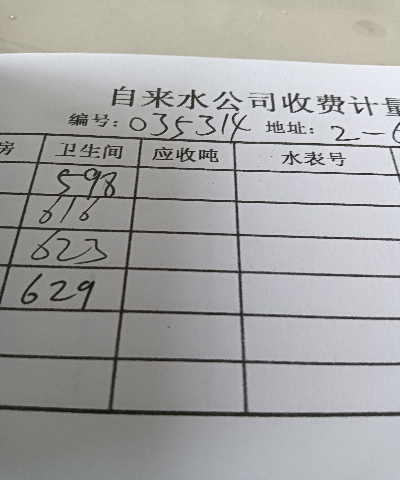 自来水公司收费计量
编号: 035314 地址: 2-
房 卫生间 应收吨 水表号
598
616
623
629